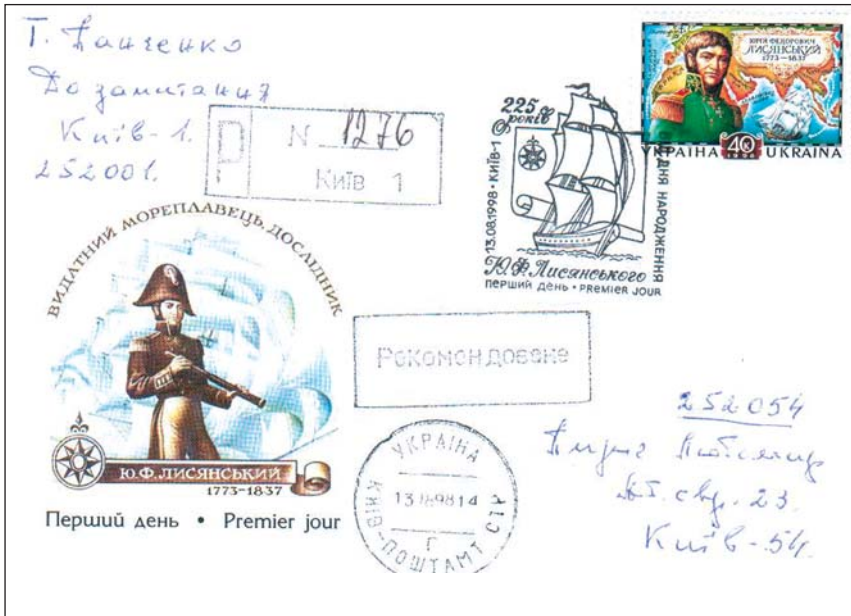 Т. Панченко
До запитання
Київ-1.
252001.
Р
N 1276
Київ 1
ЮРІЙ ФЕДОРОВИЧ
ЛИСЯНСЬКИЙ
1773–1837
УКРАЇНА 40 UKRAINA
1998
225
років
ДНЯ НАРОДЖЕННЯ
13.08.1998 • КИЇВ-1
Ю.Ф. Лисянського
ПЕРШИЙ ДЕНЬ • PREMIER JOUR
ВИДАТНИЙ МОРЕПЛАВЕЦЬ, ДОСЛІДНИК
Ю.Ф. ЛИСЯНСЬКИЙ
1773–1837
Перший день • Premier jour
Рекомендоване
УКРАЇНА
КИЇВ-ПОШТАМТ
Г
252054
23.
Київ-54.